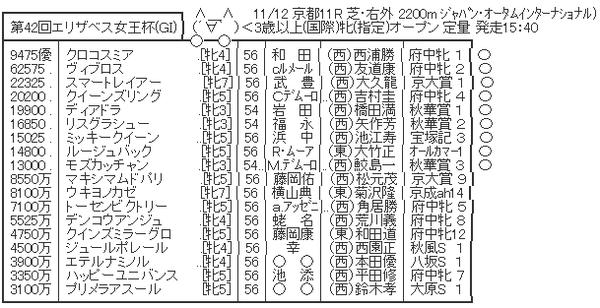 第42回エリザベス女王杯(GI) 11/12 京都11R 芝・右外 2200m ジャパン・オータムインターナショナル)
(´∀`) <3歳以上(国際)牝(指定)オープン 定量 発走15:40
9475優 クロコスミア .[牝4] 56 和田 (西)西浦勝 府中牝 1 ○
62575. ヴィブロス .[牝4] 56 cルメール (西)友道康 府中牝 2 ○
22325 スマートレイアー .[牝7] 56 武豊 (西)大久龍 京大賞 1 ○
20200. クイーンズリング .[牝5] 56 Cデムーロ (西)吉村圭 府中牝 4 ○
19900 ディアドラ .[牝3] 54 岩田 (西)橋田満 秋華賞 1 ○
16850 リスグラシュー .[牝3] 54 福永 (西)矢作芳 秋華賞 2 ○
15025. ミッキークイーン .[牝5] 56 浜中 (西)池江寿 宝塚記 3 ○
14800. ルージュバック .[牝5] 56 R・ムーア (東)大竹正 オールカマー1 ○
13000 モズカッチャン .[牝3] 54.. Mデムーロ (西)鮫島一 秋華賞 3 ○
8550万 マキシマムドパリ .[牝5] 56 藤岡佑 (西)松元茂 京大賞 9
8100万 ウキヨノカゼ .[牝7] 56 横山典 (東)菊沢隆 京成ah14
7100万 トーセンビクトリー .[牝5] 56 aアッゼニ (西)角居勝 府中牝 5
5525万 デンコウアンジュ .[牝4] 56 蛯名 (西)荒川義 府中牝 8
4750万 クインズミラーグロ .[牝5] 56 藤岡康 (東)和田道 府中牝12
4500万 ジュールポレール .[牝4] 56 幸 (西)西園正 秋風S 1
3900万 エテルナミノル .[牝4] 56 ○ ○ (西)本田優 八坂S 1
3350万 ハッピーユニバンス .[牝5] 56 池添 (西)平田修 府中牝 7
3100万 プリメラアスール .[牝5] 56 ○ ○ (西)鈴木孝 大原S 1